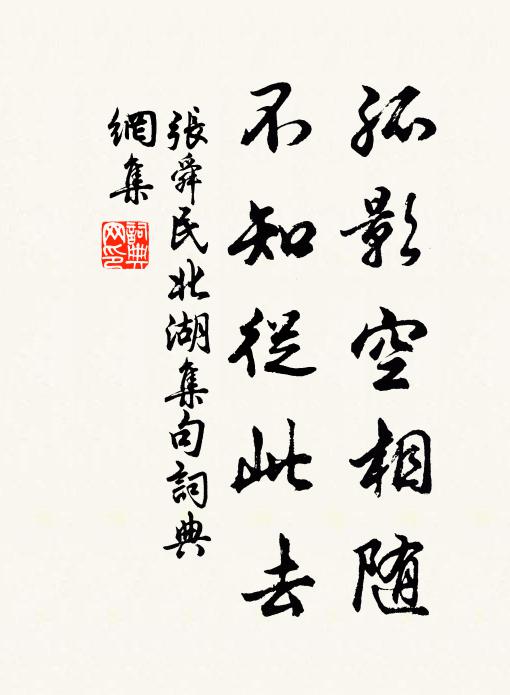 孤影空相随
不知從此去
張舜民北湖集句詞典
網集
詞典
网印